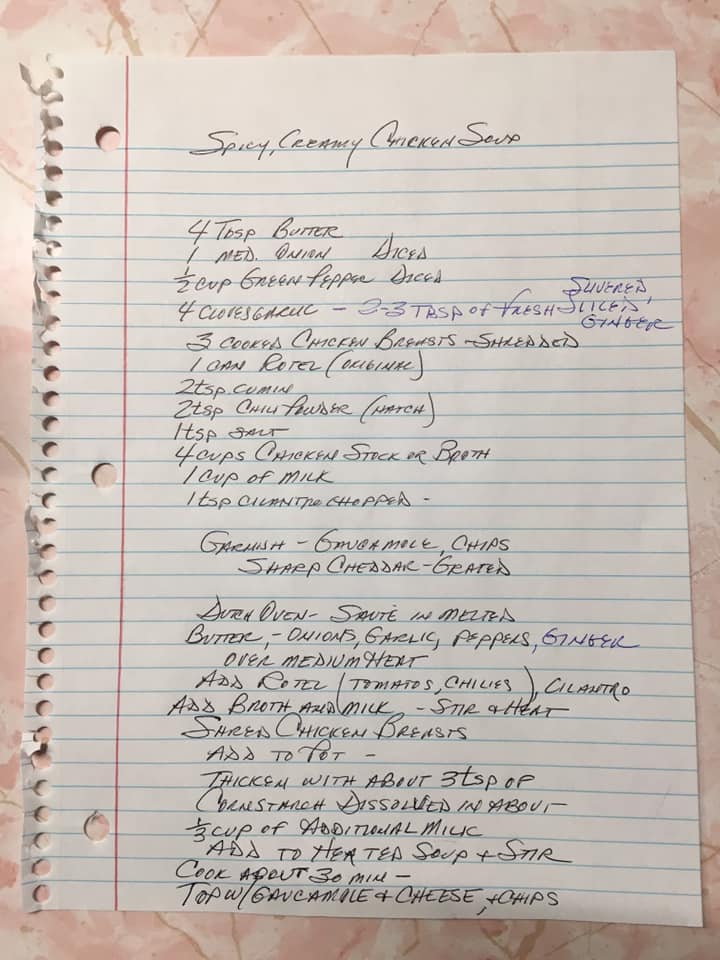 Spicy, Creamy Chicken Soup
4 Tbsp Butter
1 Med. Onion Diced
½ cup Green Pepper Diced
4 cloves garlic - 2-3 Tbsp of Fresh Slivered, Sliced, Ginger
3 cooked Chicken Breasts - Shredded
1 can Rotel (original)
2 tsp. cumin
2 tsp Chili Powder (Hatch)
1 tsp salt
4 cups Chicken Stock or Broth
1 cup of milk
1 tsp cilantro chopped -
Garnish - Gaucamole, Chips
Sharp Cheddar - Grated
Dutch Oven - Sauté in melted
Butter, - Onions, Garlic, Peppers, Ginger
over medium heat
Add Rotel (Tomatos, Chilies), Cilantro
Add Broth and Milk - Stir & Heat
Shred Chicken Breasts
Add to Pot -
Thicken with about 3 tsp of
Cornstarch Dissolved in about
⅓ cup of Additional Milk
Add to Heated Soup + Stir
Cook about 30 min -
Top w/ Gaucamole & Cheese, + Chips